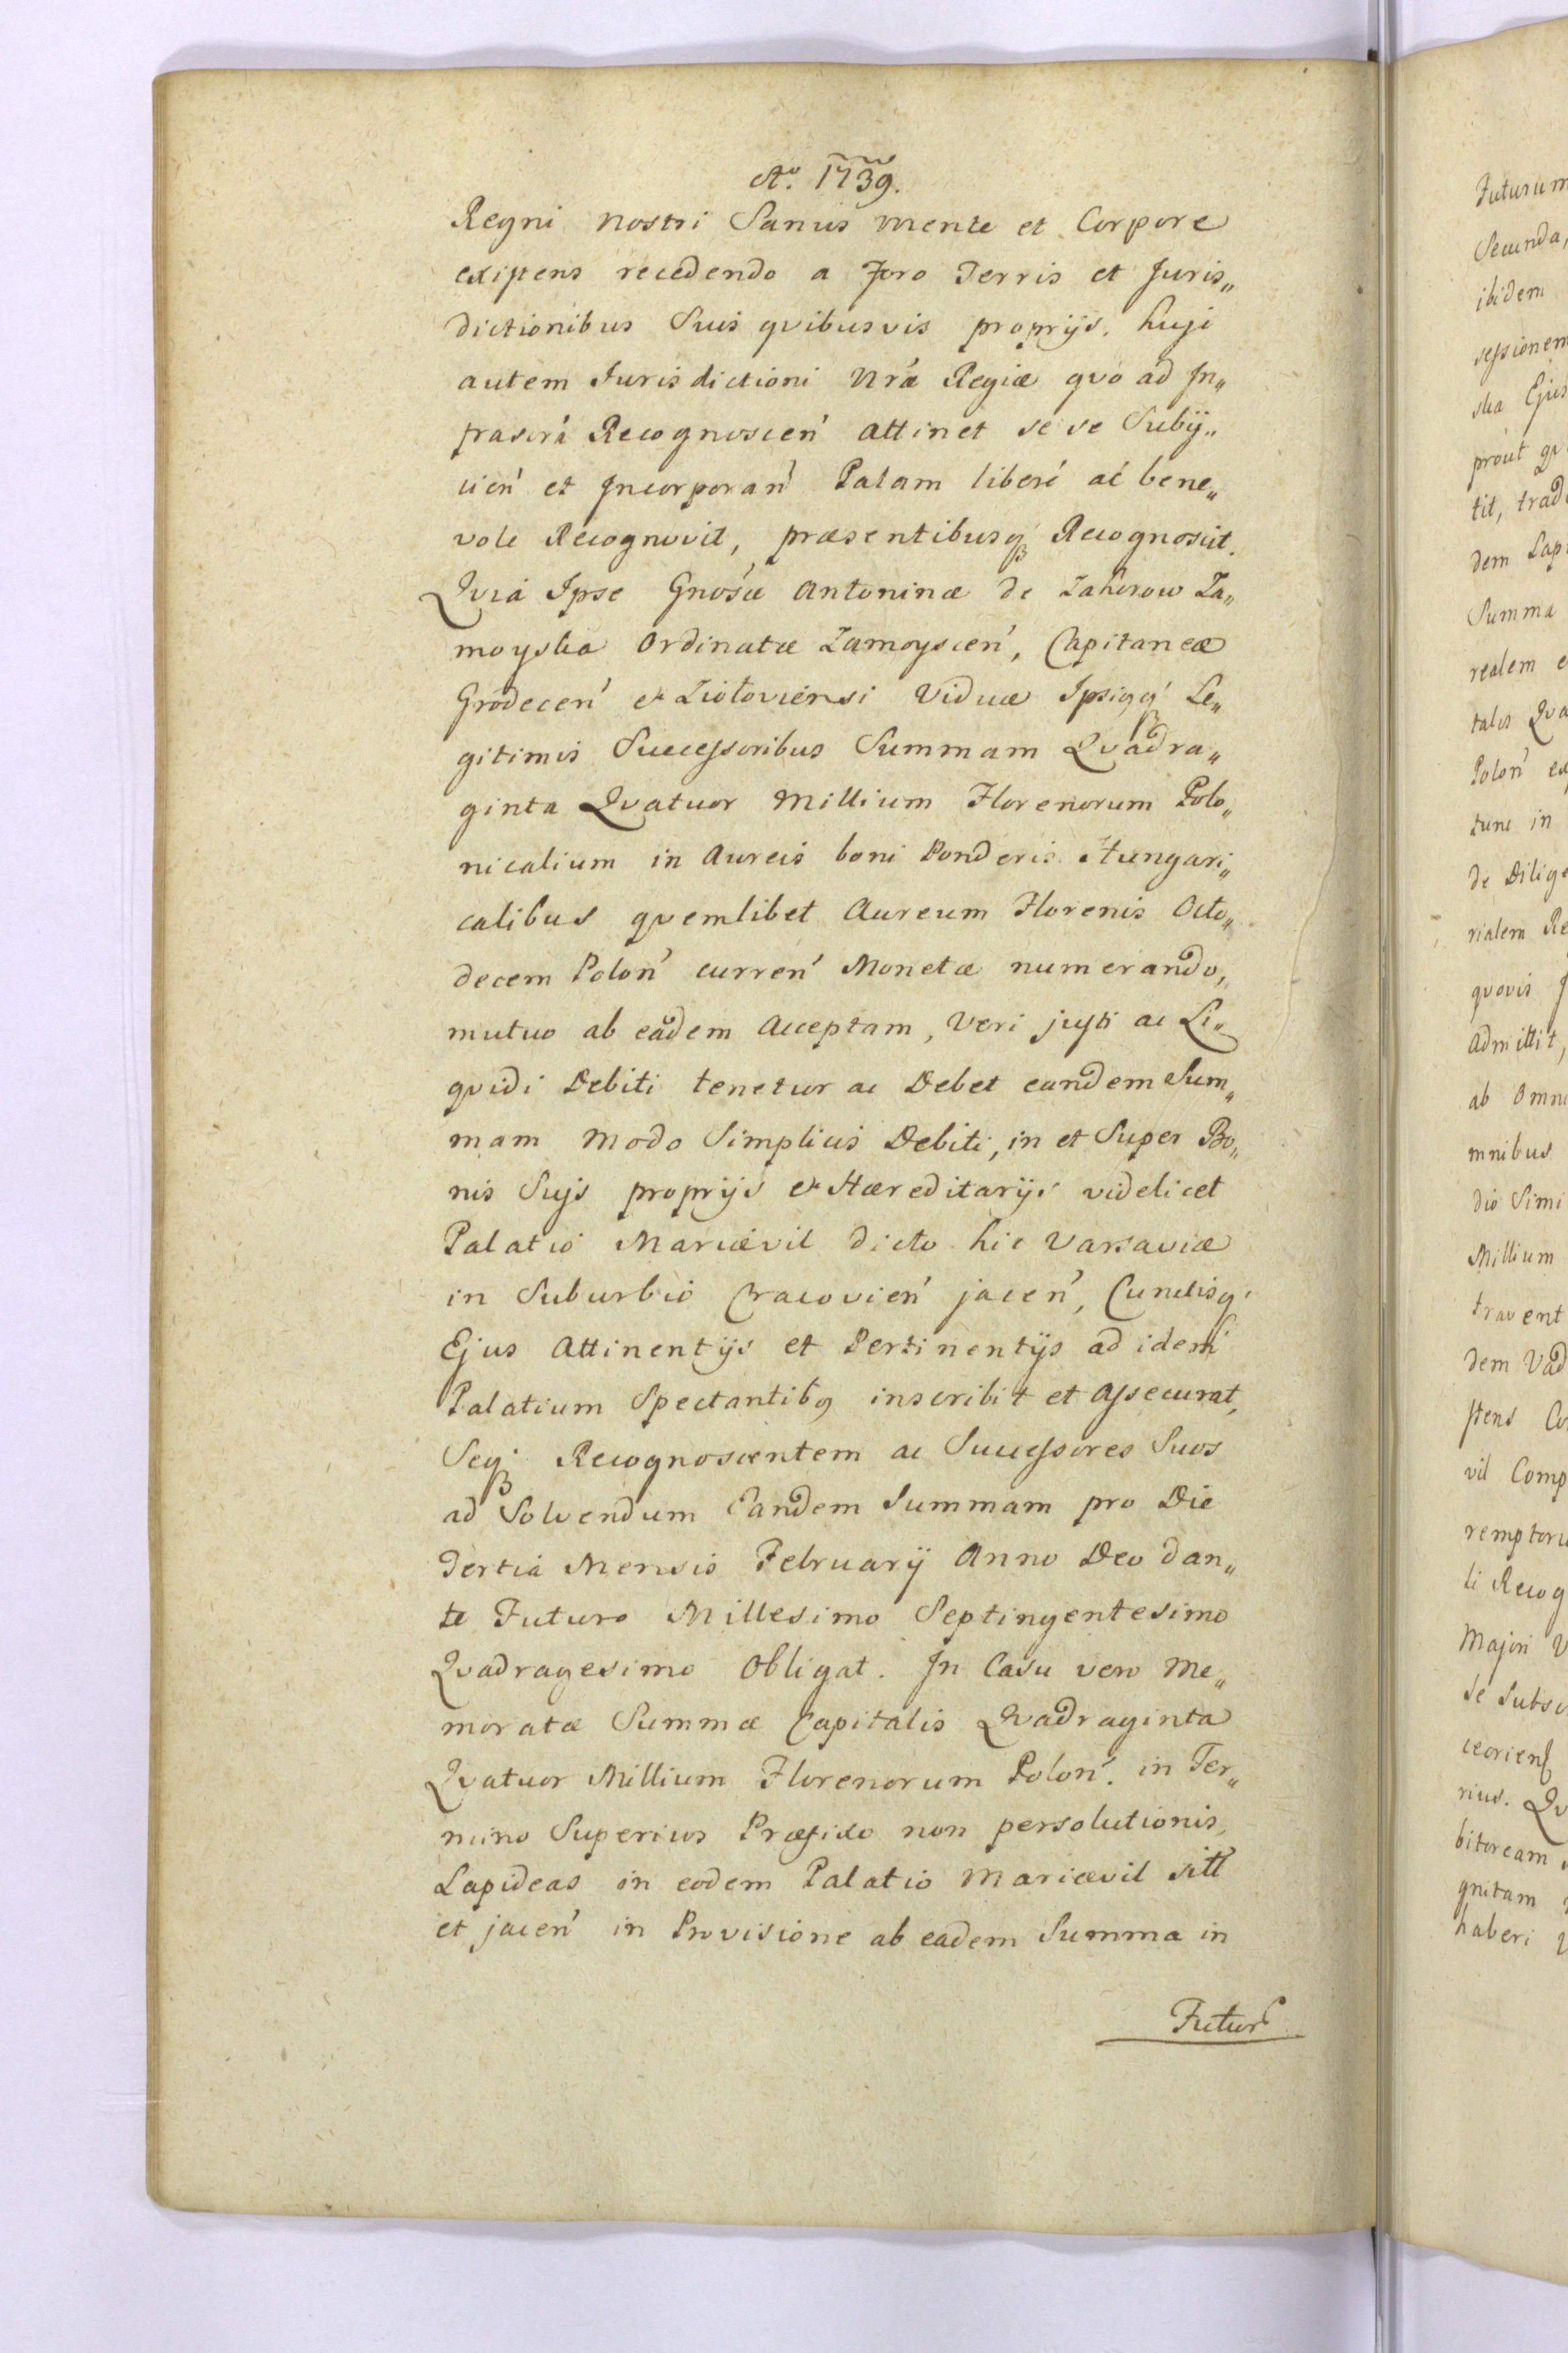 Ao. 1739.
Regni nostri Sanus mente et Corpore
existens recedendo a Foro Terris et Juris„
dictionibus Suis qvibusvis proprijs, huji
autem Jurisdictioni Nrá Regiæ qvo ad In„
frascrá Recognoscen̄ attinet se se Subij„
cien̄ et Incorporan̄ Palam liberé ac bene„
vole Recognovit, præsentibusq Recognoscit.
Qvia Ipse Gnosæ Antoninæ de Zahorow Za„
moyska Ordinatæ Zamoyscen̄, Capitaneæ
Grodecen̄ et Ziołoviensi Viduæ Ipsiqq Le„
gitimis Successoribus Summam Qvadra„
ginta Qvatuor Millium Florenorum Polo„
nicalium in Aureis boni Ponderis Hungari„
calibus qvemlibet Aureum Florenis Octo„
decem Polon̄ curren̄ Monetæ numerando,
mutuo ab eadem Acceptam, Veri justi ac Li„
qvidi Debiti tenetur ac Debet eandem Sum„
mam Modo Simplicis Debiti, in et Super Bo„
nis Sujs proprijs et Hæreditarijs videlicet
Palatio Mariævil dicto hic Varsaviæ
in Suburbio Cracovien̄ jacen̄, Cunctisq
Ejus Attinentijs et Pertinentijs ad idem
Palatium Spectantibq inscribit et Assecurat,
Seq Recognoscentem ac Successores Suos
ad Solvendum Eandem Summam pro Die
Tertia Mensis Februarij Anno Deo dan„
te Futuro Millesimo Septingentesimo
Qvadragesimo Obligat. In Casu vero Me„
moratæ Summæ Capitalis Qvadraginta
Qvatuor Millium Florenorum Polon̄. in Ter„
mino Superius Præfixo non persolutionis,
Lapideas in eodem Palatio Mariævil sitt
et jacen̄ in Provisione ab eadem Summa in
Futur
Futurum
Secunda,
ibidem
sessionem
ska Ejus
prout qv
tit, trad
dem Lapi
Summa
realem e
tales Qva
Polon̄ ex
tunc in
de Dilige
rialem Re
qvovis J
Admittit,
ab Omni
mnibus
dio Simi
Millium
travent
dem Vad
stens Co
vil Comp
remptori
li Recog
Majori V
se Subsc
ceorien
rius. Qv
bitoream
gnitam
haberi V